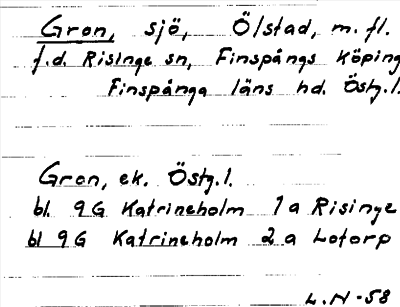 Gron, sjö, Ölstad, m. fl.
f.d. Risinge sn, Finspångs köping
Finspånga läns hd. Östg.l.
Gron, ek. Östg.l.
bl. 9G Katrineholm 1a Risinge
bl 9G Katrineholm 2a Lotorp
L.N-58